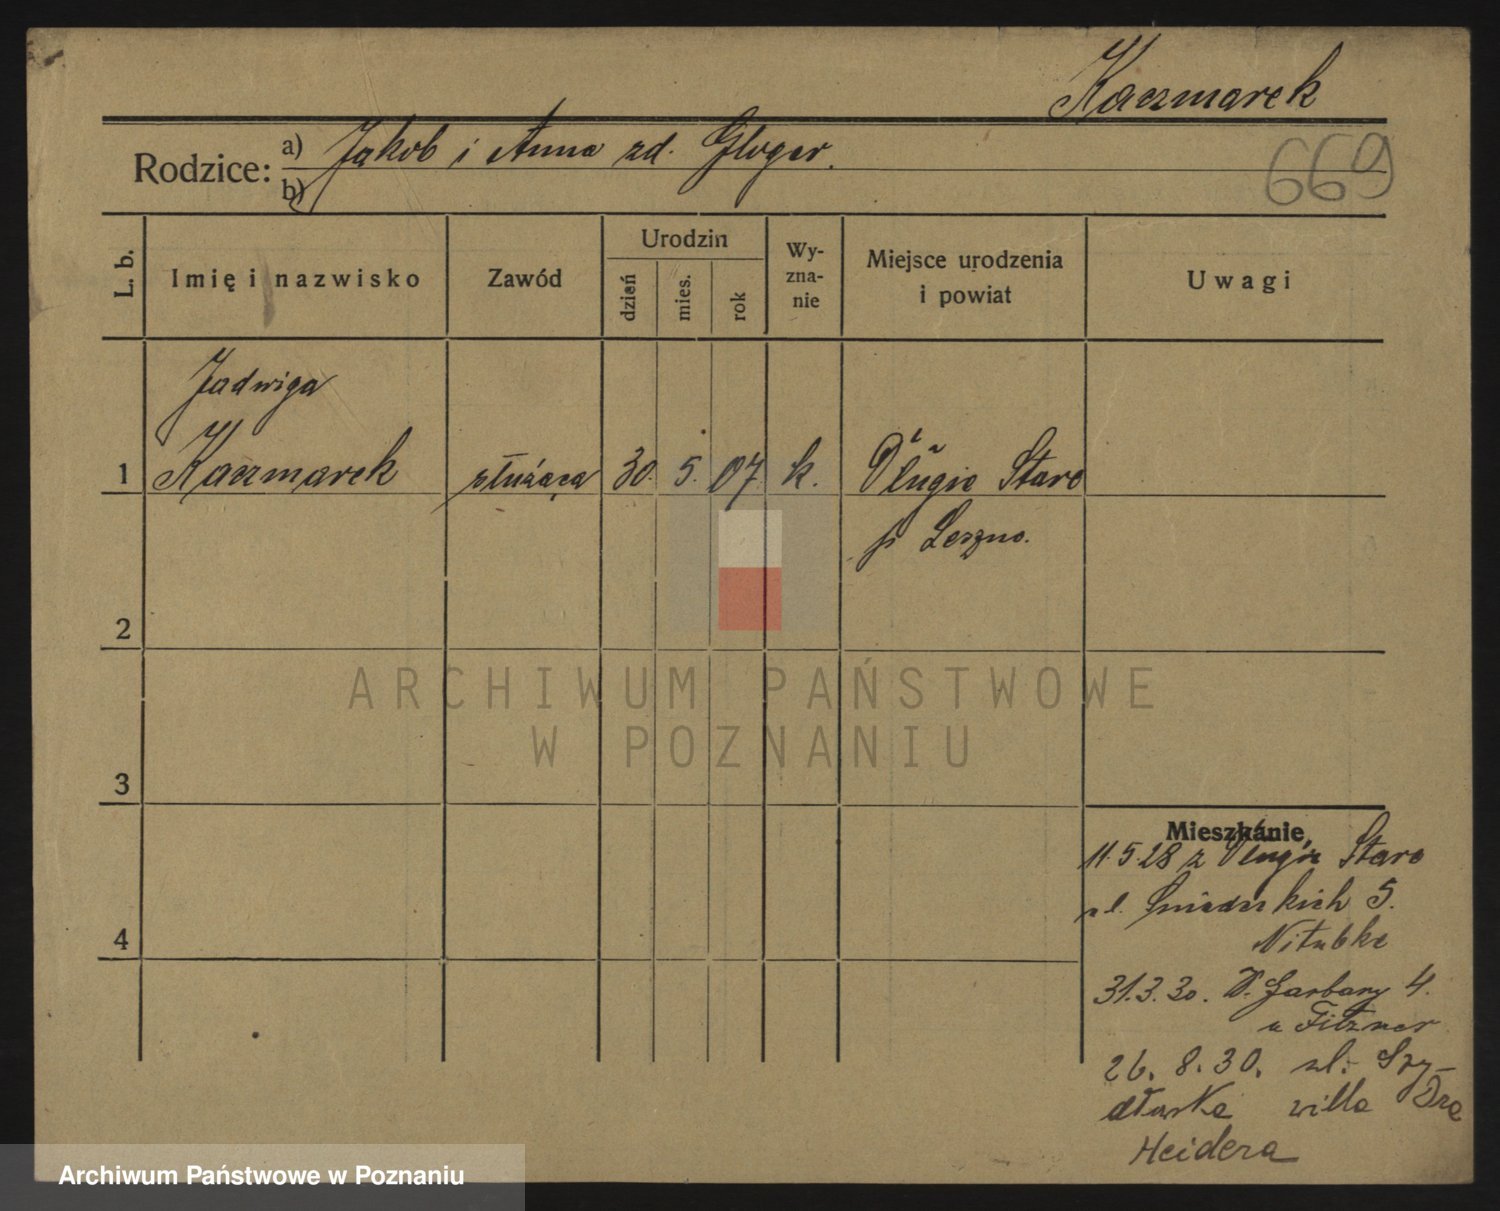 Kaczmarek
669
Rodzice: a) Jakob i Anna zd. Gloger.
b)
L. b.
Imię i nazwisko
Zawód
Urodzin
dzień
mies.
rok
Wy-
zna-
nie
Miejsce urodzenia
i powiat
Uwagi
Jadwiga
1 Kaczmarek służąca 30. 5. 07 k. Długie Stare
p Leszno.
2
3
4
Mieszkanie
11.5.28 z Długie Stare
ul. 5.
31.3.30. Garbary 4.
u Fitzner
26. 8. 30. ul.
willa Dra
Heidera
ARCHIWUM PAŃSTWOWE
W POZNANIU
Archiwum Państwowe w Poznaniu